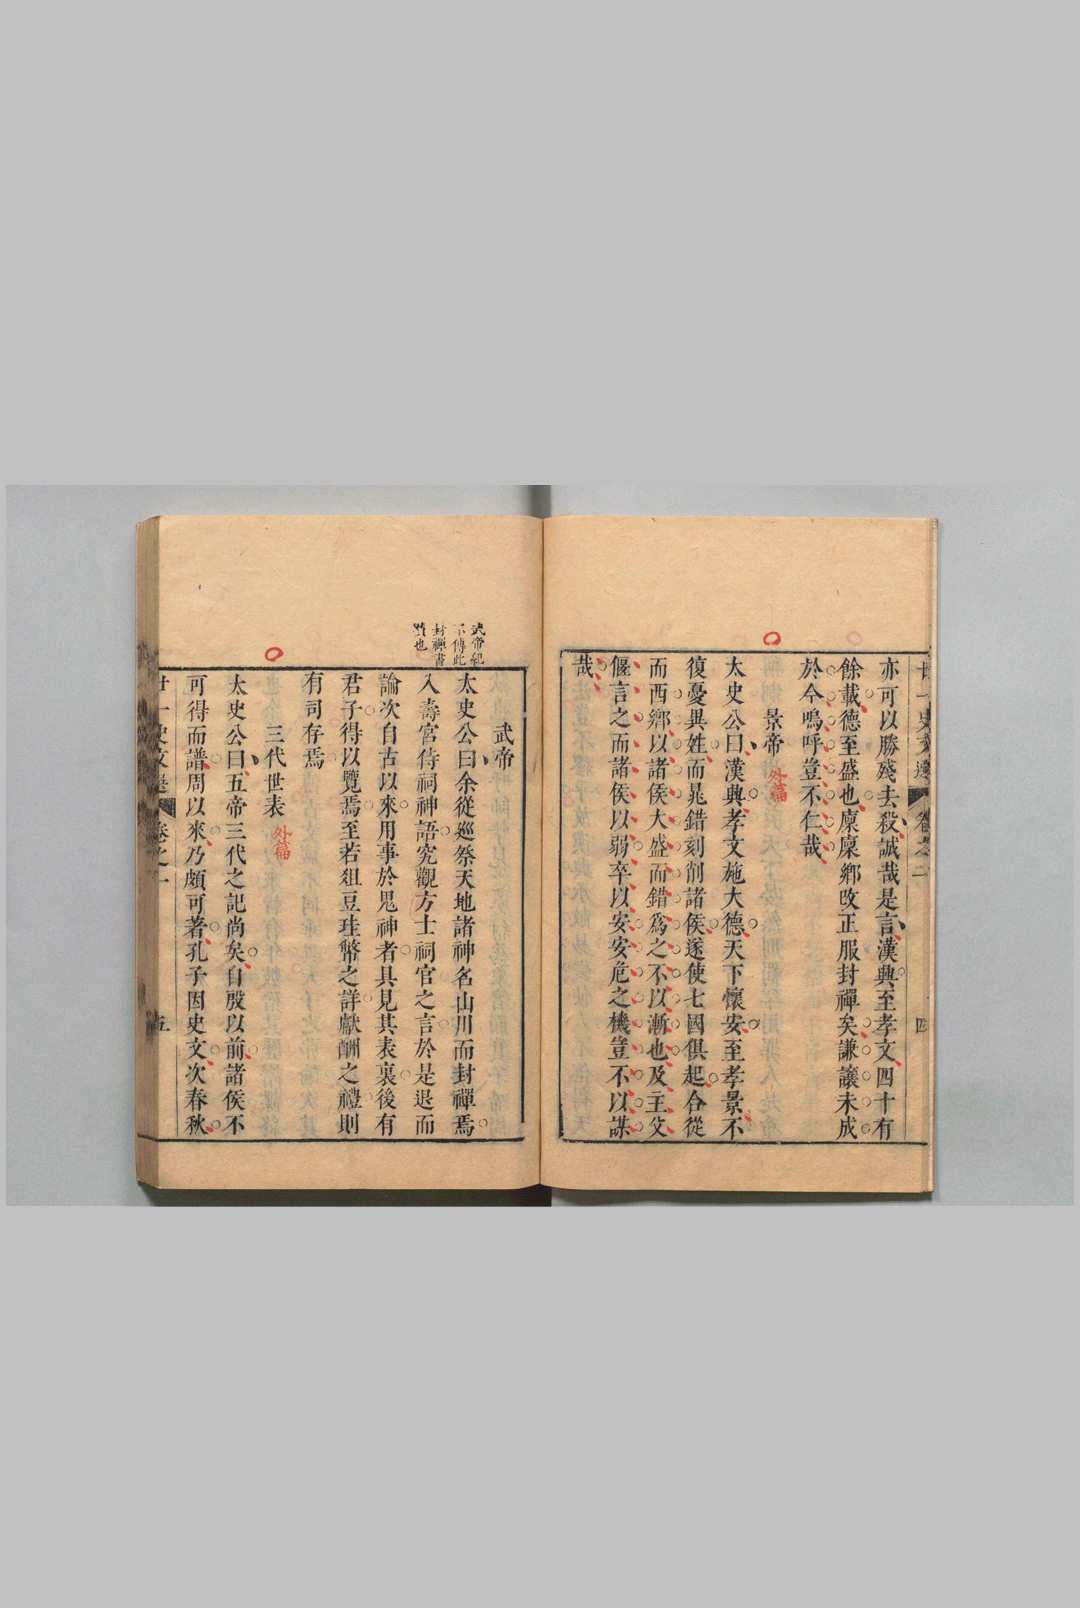 亦可以勝殘去殺誠哉是言漢興至孝文四十有
餘載德至盛也廩廩鄉改正服封禪矣謙讓未成
於今嗚呼豈不仁哉
景帝
外篇
太史公曰漢興孝文施大德天下懷安至孝景不
復憂異姓而晁錯刻削諸侯遂使七國俱起合從
而西鄉以諸侯大盛而錯為之不以漸也及主父
偃言之而諸侯以弱卒以安安危之機豈不以謀
哉
四
武帝紀
不傳此
封禪書
贊也
武帝
太史公曰余從巡祭天地諸神名山川而封禪焉
入壽宮侍祠神語究觀方士祠官之言於是退而
論次自古以來用事於鬼神者具見其表裏後有
君子得以覽焉至若俎豆珪幣之詳獻酬之禮則
有司存焉
三代世表
外篇
太史公曰五帝三代之記尚矣自殷以前諸侯不
可得而譜周以來乃頗可著孔子因史文次春秋
五